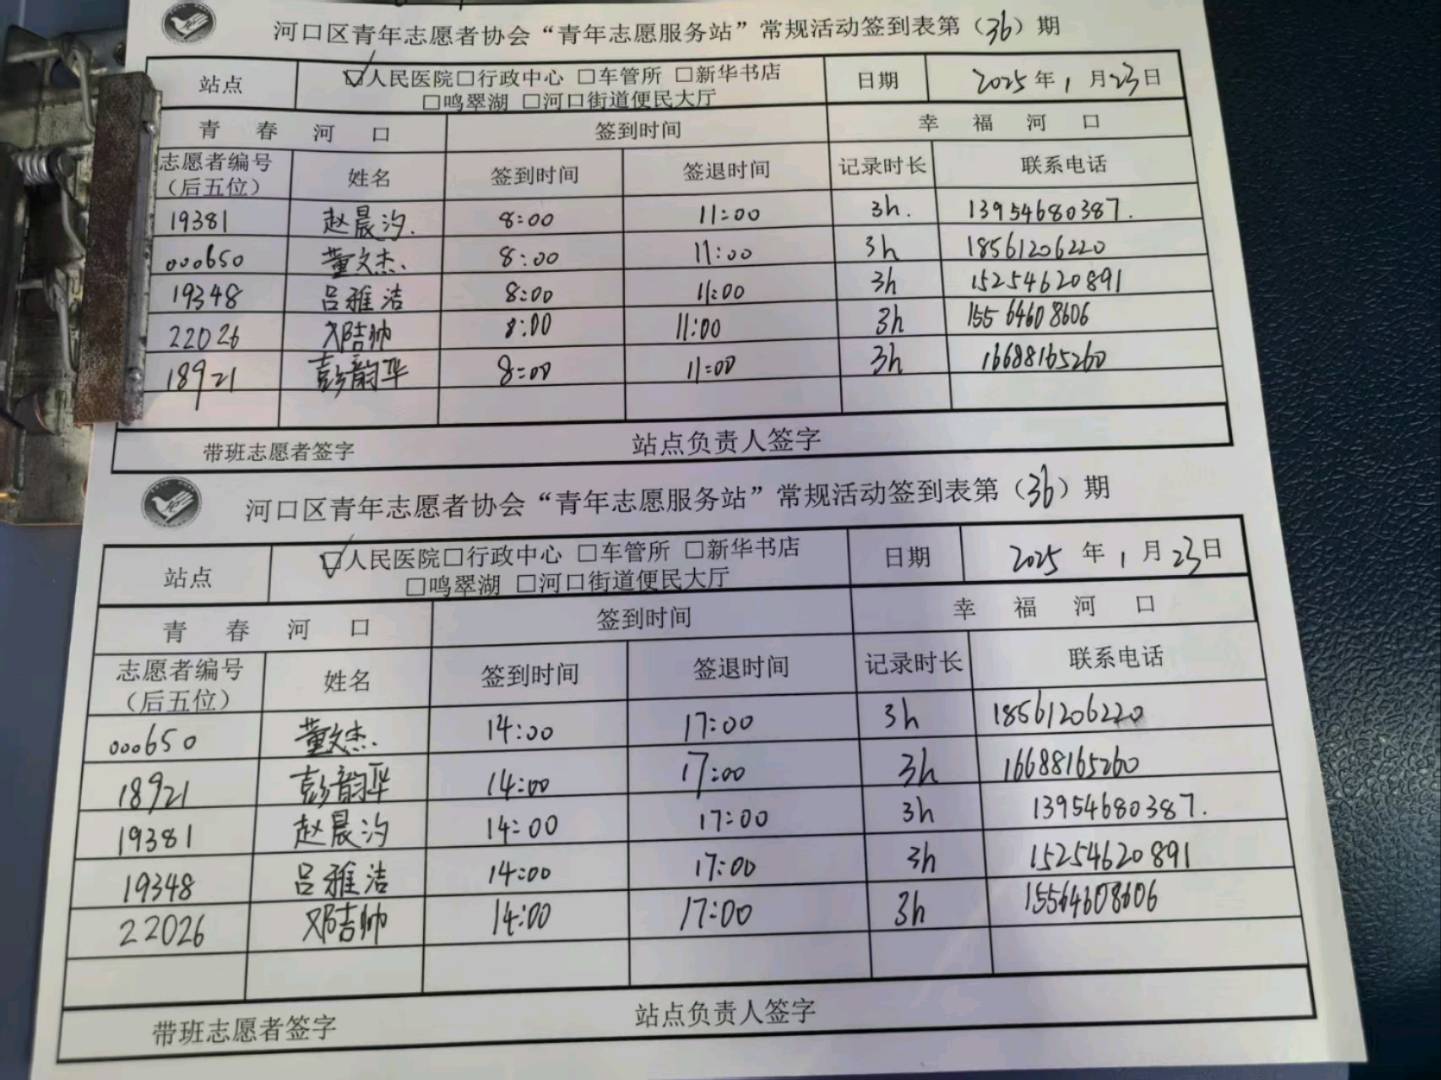 河口区青年志愿者协会“青年志愿服务站”常规活动签到表第（36）期
站点 ☑人民医院□行政中心 □车管所 □新华书店 日期 2025年1月23日
□鸣翠湖 □河口街道便民大厅
青春河口 签到时间 幸福河口
志愿者编号（后五位） 姓名 签到时间 签退时间 记录时长 联系电话
19381 赵晨汐. 8:00 11:00 3h. 13954680387.
000650 董文杰. 8:00 11:00 3h 18561206220
19348 吕雅洁 8:00 11:00 3h 15254620891
22026 邓吉帅 8:00 11:00 3h 15564608606
18921 彭韵华 8:00 11:00 3h 16688165260
带班志愿者签字 站点负责人签字
河口区青年志愿者协会“青年志愿服务站”常规活动签到表第（36）期
站点 ☑人民医院□行政中心 □车管所 □新华书店 日期 2025年1月23日
□鸣翠湖 □河口街道便民大厅
青春河口 签到时间 幸福河口
志愿者编号（后五位） 姓名 签到时间 签退时间 记录时长 联系电话
000650 董文杰. 14:00 17:00 3h 18561206220
18921 彭韵华 14:00 17:00 3h 16688165260
19381 赵晨汐 14:00 17:00 3h 13954680387.
19348 吕雅洁 14:00 17:00 3h 15254620891
22026 邓吉帅 14:00 17:00 3h 15564608606
带班志愿者签字 站点负责人签字